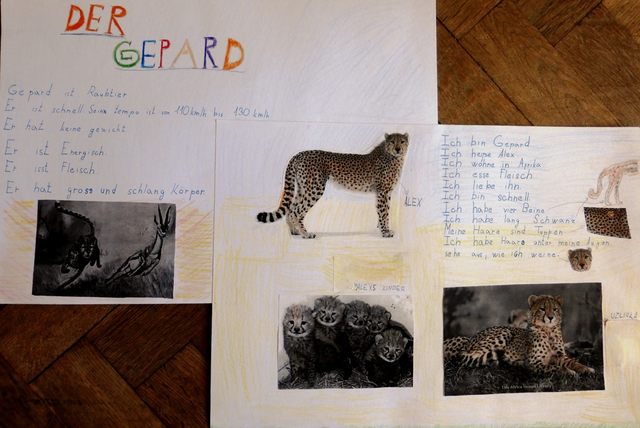 DER
GEPARD
Gepard ist Raubtier
Er ist schnell Seine tempo ist von 110 km/h bis 130 km/h
Er hat keine gewicht
Er ist Energisch.
Er isst Fleisch.
Er hat gross und schlang Körper.
ALEX
Ich bin Gepard
Ich heine Alex
Ich wohne in Afrika
Ich esse Fleisch
Ich liebe ihn.
Ich bin schnell
Ich habe vier Beine
Ich habe lang Schwanz
Meine Haare sind Tuppen
Ich habe Haare unter meine Augen.
sehe aus, wie ich weine.
ALEXS KINDER